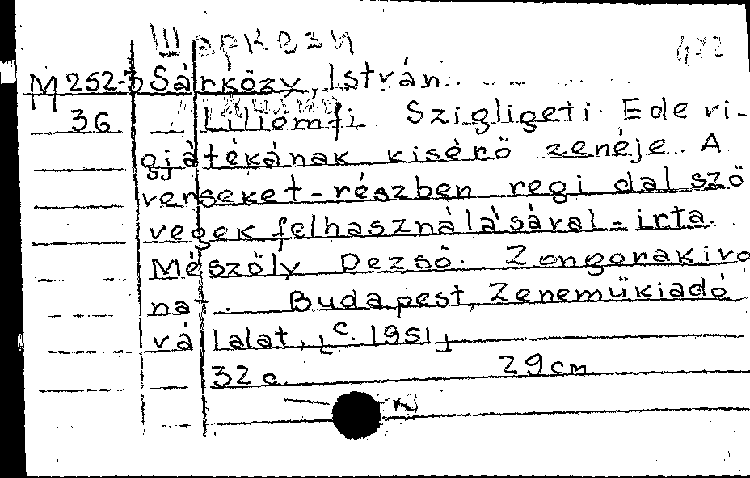 Шаркези 472
M 252-3 Sárközy, István.
36 Liliomfi Szigligeti Ede vi-
gjátékának kisérő zenéje. A
verseket - részben regi dal szö
vegek felhasználásával - irta.
Mészöly Dezső. Zongorakivo
nat. Budapest, Zeneműkiadó
vállalat, [c. 1951]
32 c. 29 cm